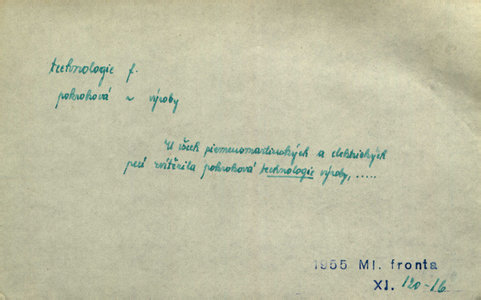 technologie f.
pokroková ~ výroby
U všech siemensmartinských a elektrických
pecí zvítězila pokroková technologie výroby, .....
1955 Ml. fronta
XI. 120-1б